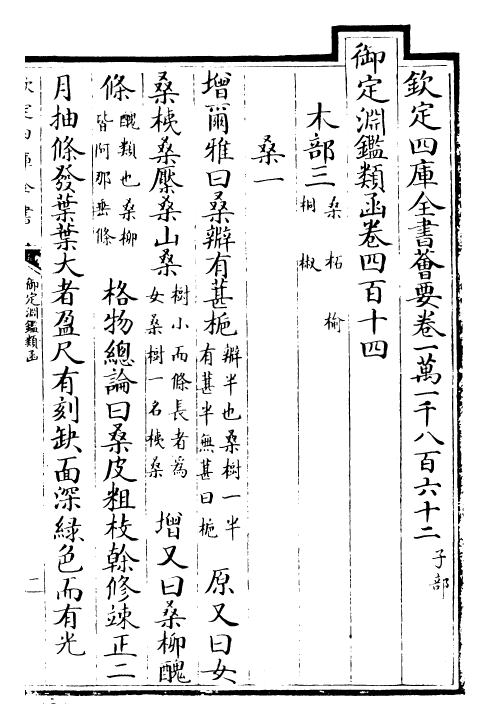 欽定四庫全書薈要卷一萬一千八百六十二 子部
御定淵鑑類函卷四百十四
木部三 桑 柘 榆 桐 椒
桑一
增爾雅曰桑辧有葚梔 辧半也桑樹一半有葚半無葚曰梔 原又曰女
桑桋桑檿桑山桑 樹小而條長者為女桑樹一名桋桑 增又曰桑柳醜
條 醜類也桑柳皆阿那垂條 格物總論曰桑皮粗枝榦修竦正二
月抽條發葉葉大者盈尺有刻缺面深綠色而有光
欽定四庫全書
御定淵鑑類函